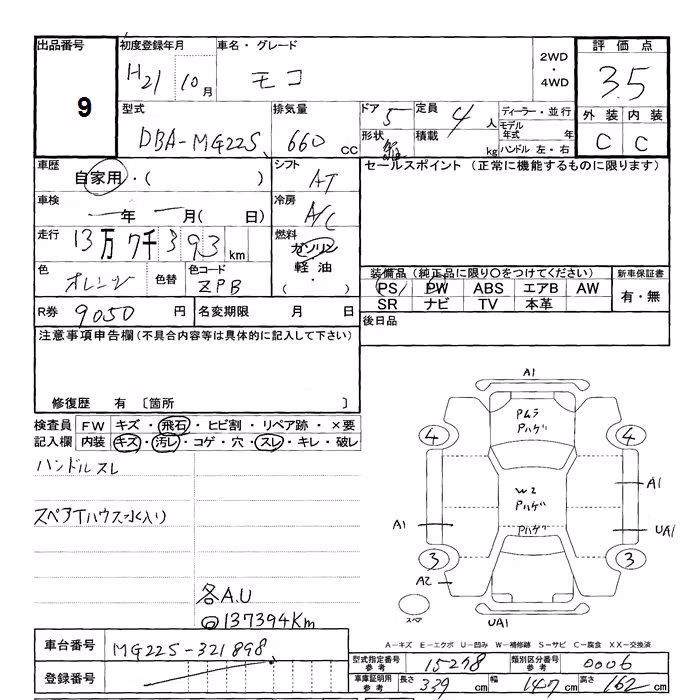 出品番号 初度登録年月 車名・グレード 2WD・4WD 評価点
9 H21 10月 モコ 3.5
型式 排気量 ドア 5 定員 4人 ディーラー・並行 外装 内装
DBA-MG22S 660cc 形状 積載 kg モデル年式 年 C C
ハンドル 左・右
車歴 自家用・( ) シフト AT セールスポイント (正常に機能するものに限ります)
車検 ー年 ー月( 日) 冷房 A/C
走行 13万7千393km 燃料 ガソリン 軽油・( )
色 オレンジ 色替 色コード ZPB 装備品 (純正品に限り○をつけてください) 新車保証書
PS PW ABS エアB AW 有・無
SR ナビ TV 本革
R券 9050円 名変期限 月・日 後日品
注意事項申告欄(不具合内容等は具体的に記入して下さい)
修復歴 有 〔箇所 〕
検査員 FW キズ・飛石・ヒビ割・リペア跡・×要
記入欄 内装 キズ・汚レ・コゲ・穴・スレ・キレ・破レ
ハンドルスレ
スペアTハウス水入り
各A.U
@137394Km
A1
Pムラ
Pハゲ
4 4
W2
Pハゲ
A1
A1 Pハゲ UA1
3 3
A2
スペア UA1
A-キズ E-エクボ U-凹み W-補修跡 S-サビ C-腐食 XX-交換済
車台番号 MG22S-321898
登録番号
型式指定番号 参考 15278 類別区分番号 参考 0006
車庫証明用 参考 長さ 339cm 幅 147cm 高さ 162cm